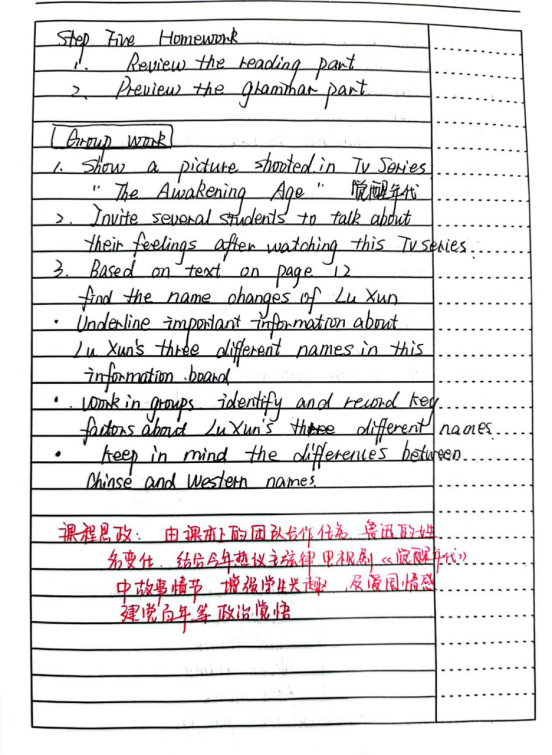 Step Five Homework
1. Review the reading part
2. Preview the grammar part
Group work
1. Show a picture shooted in TV Series
" The Awakening Age " 觉醒年代
2. Invite several students to talk about
their feelings after watching this TV series.
3. Based on text on page 12
find the name changes of Lu Xun
· Underline important information about
Lu Xun's three different names in this
information board
· work in groups identify and record key
factors about Lu Xun's three different names
· keep in mind the differences between
Chinse and Western names.
课程思政: 由课本下的团队合作任务, 鲁迅的姓
名变化, 结合今年热议主旋律电视剧《觉醒年代》
中故事情节, 增强学生兴趣, 及爱国情感
建党百年等政治觉悟